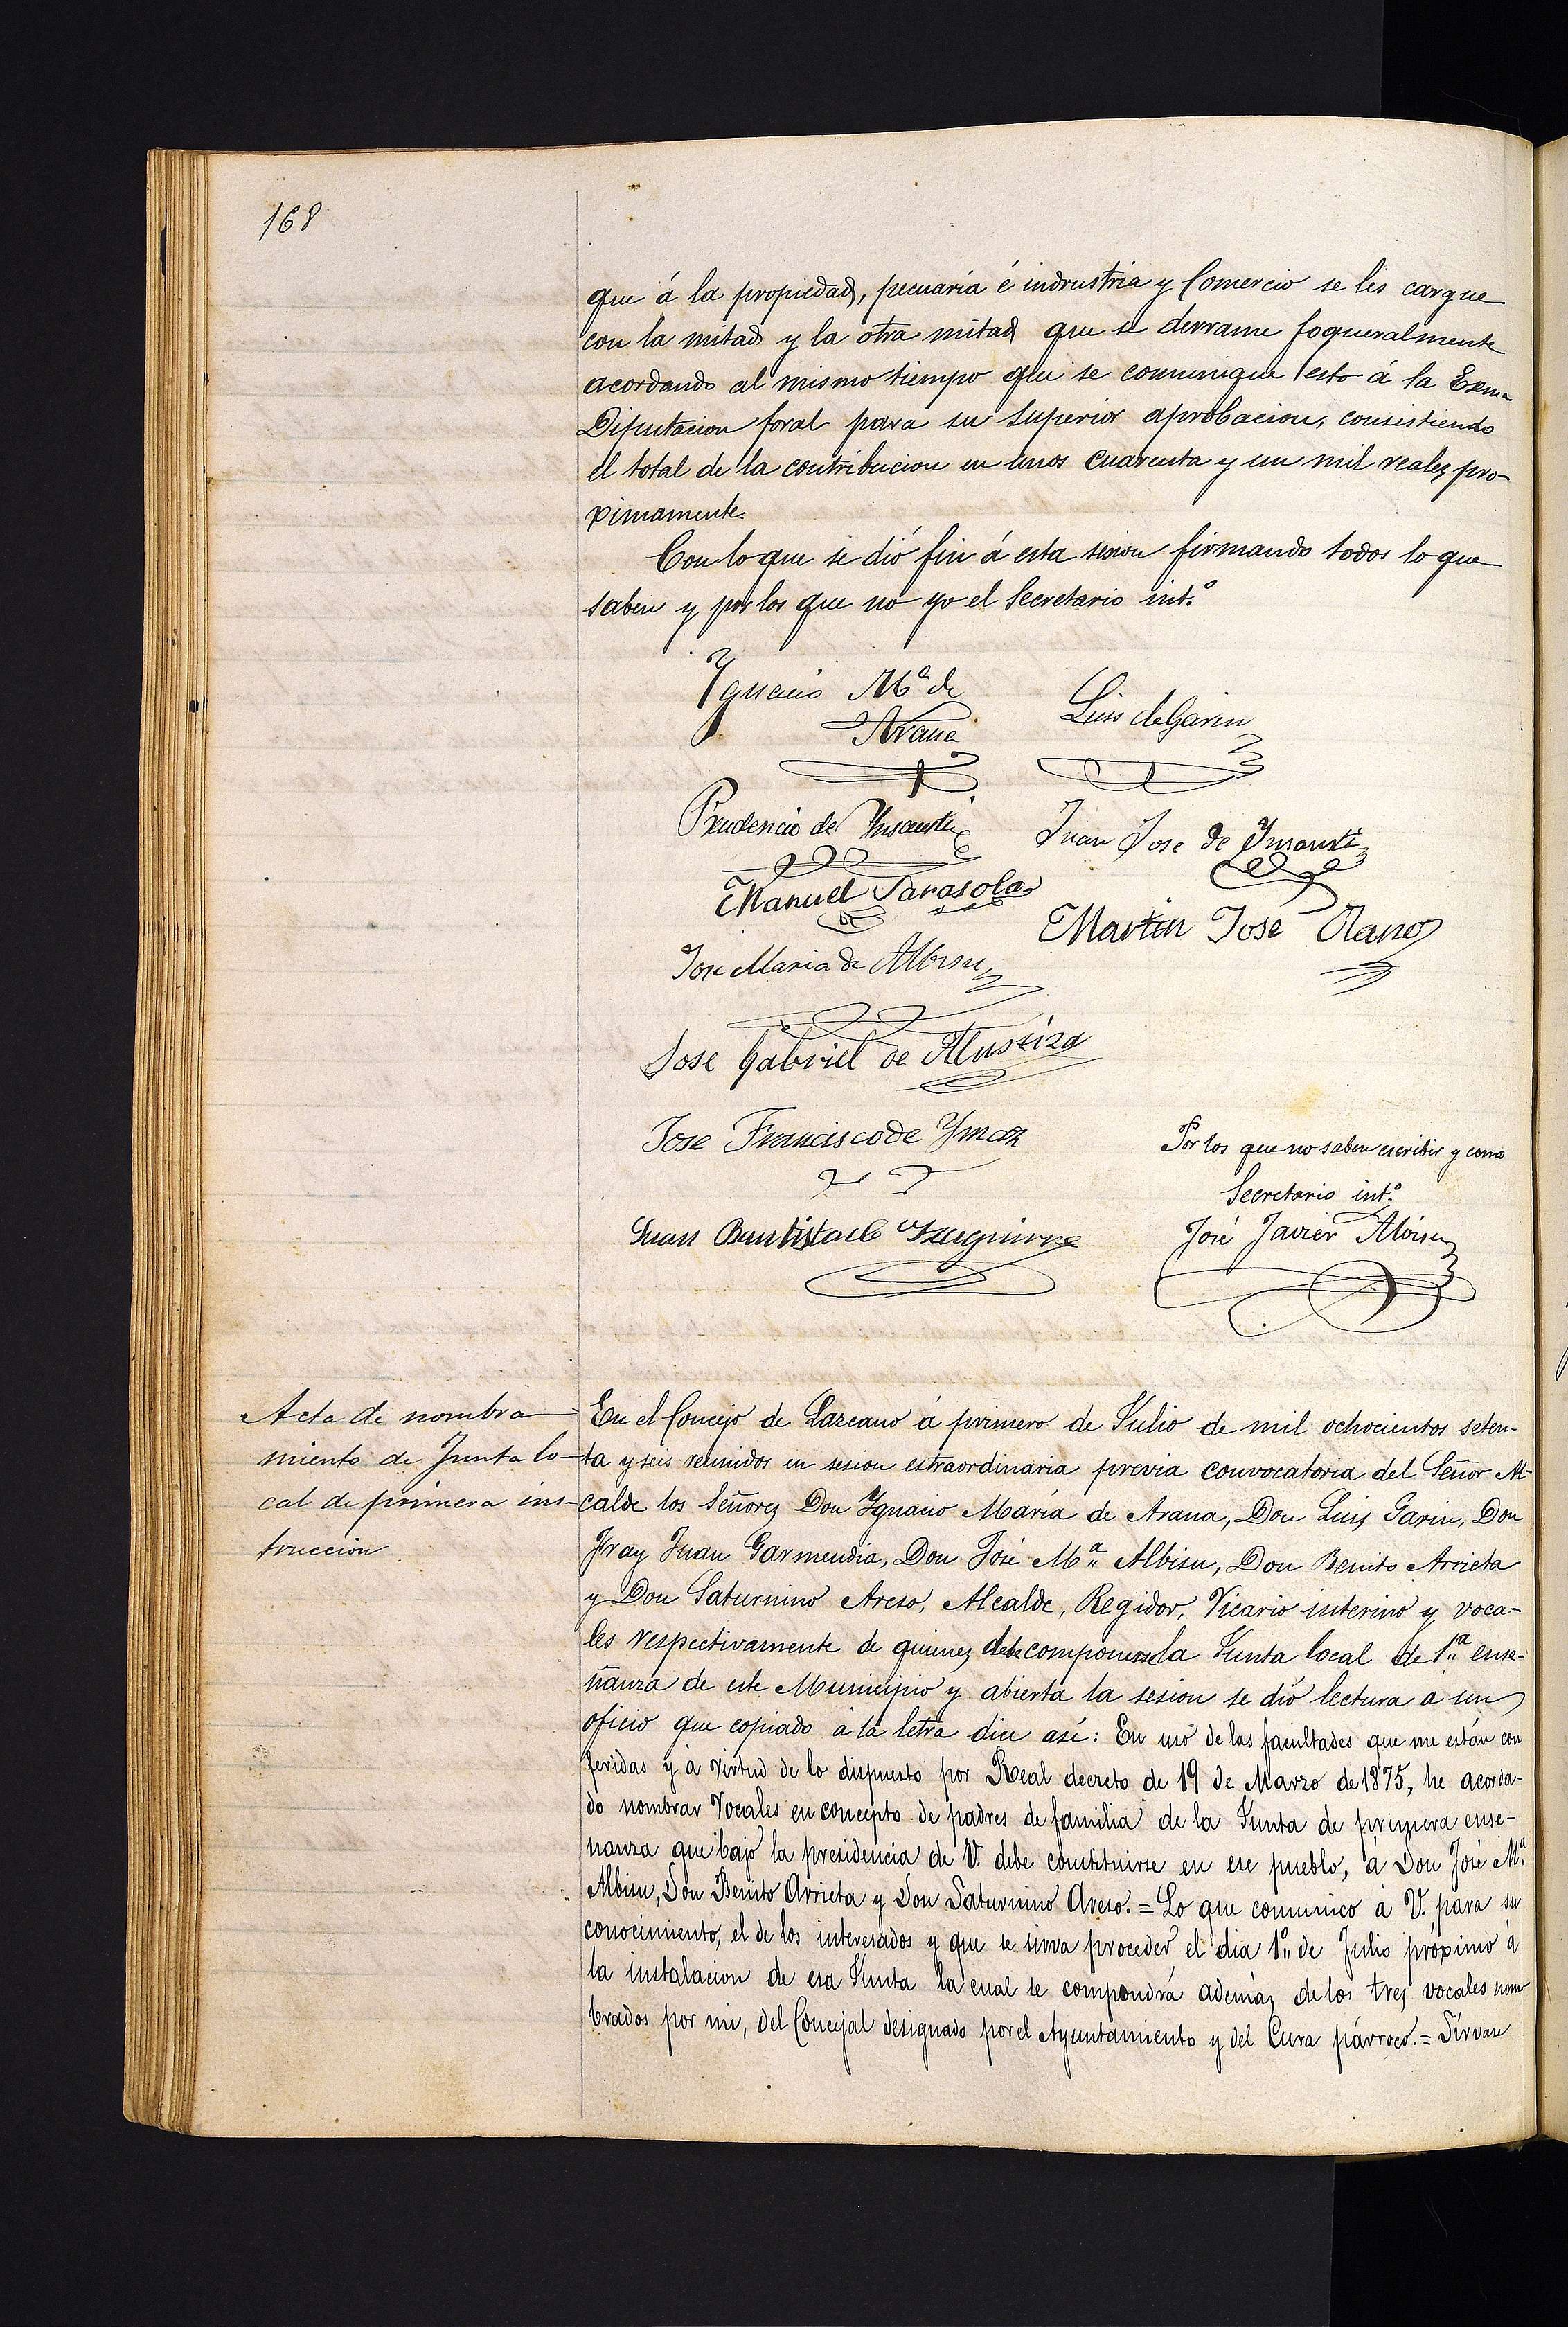 168
que á la propiedad, pecuaria é indrustria y Comercio se les cargue
con la mitad y la otra mitad que se derrame fogueralmente
acordando al mismo tiempo que se comunique esto á la Exma
Diputacion foral para su superior aprobacion, consistiendo
el total de la contribucion en unos cuarenta y un mil reales pro-
ximamente.
Con lo que se dió fin á esta sesion firmando todos lo que
saben y por los que no yo el Secretario int.º
Ygnacio Mª de
Arana
Luis de Garin
Prudencio de Ynsausti
Juan Jose de Ynsausti
Manuel Sarasola
Martin Jose Olano
Jose Maria de Albisu
Jose Gabriel de Alustiza
Jose Francisco de Ymaz
Por los que no saben escribir y como
Secretario int.º
Juan Bautista de Yzaguirre
José Javier Albisu
Acta de nombra
miento de Junta lo-
cal de primera ins-
truccion.
En el Concejo de Lazcano á primero de Julio de mil ochocientos seten-
ta y seis reunidos en sesion estraordinaria previa convocatoria del Señor Al-
calde los Señores Don Ygnacio María de Arana, Don Luis Garin, Don
Fray Juan Garmendia, Don José Mª Albisu, Don Benito Arrieta
y Don Saturnino Areso, Alcalde, Regidor, Vicario interino y voca-
les respectivamente de quienes debe componerse la Junta local de 1ª ense-
ñanza de este Municipio y abierta la sesion se dió lectura a un
oficio que copiado á la letra dice asi: En uso de las facultades que me están con
feridas y á virtud de lo dispuesto por Real decreto de 19 de Marzo de 1875, he acorda-
do nombrar Vocales en concepto de padres de familia de la Junta de primera ense-
nanza que bajo la presidencia de V. debe constituirse en ese pueblo, á Don José Mª
Albisu, Don Benito Arrieta y Don Saturnino Areso. = Lo que comunico á V. para su
conocimiento, el de los interesados y que se sirva proceder el dia 1º de Julio próximo á
la instalacion de esa Junta la cual se compondrá además de los tres vocales nom
brados por mi, del Concejal designado por el Ayuntamiento y del Cura párroco. = Sírvase